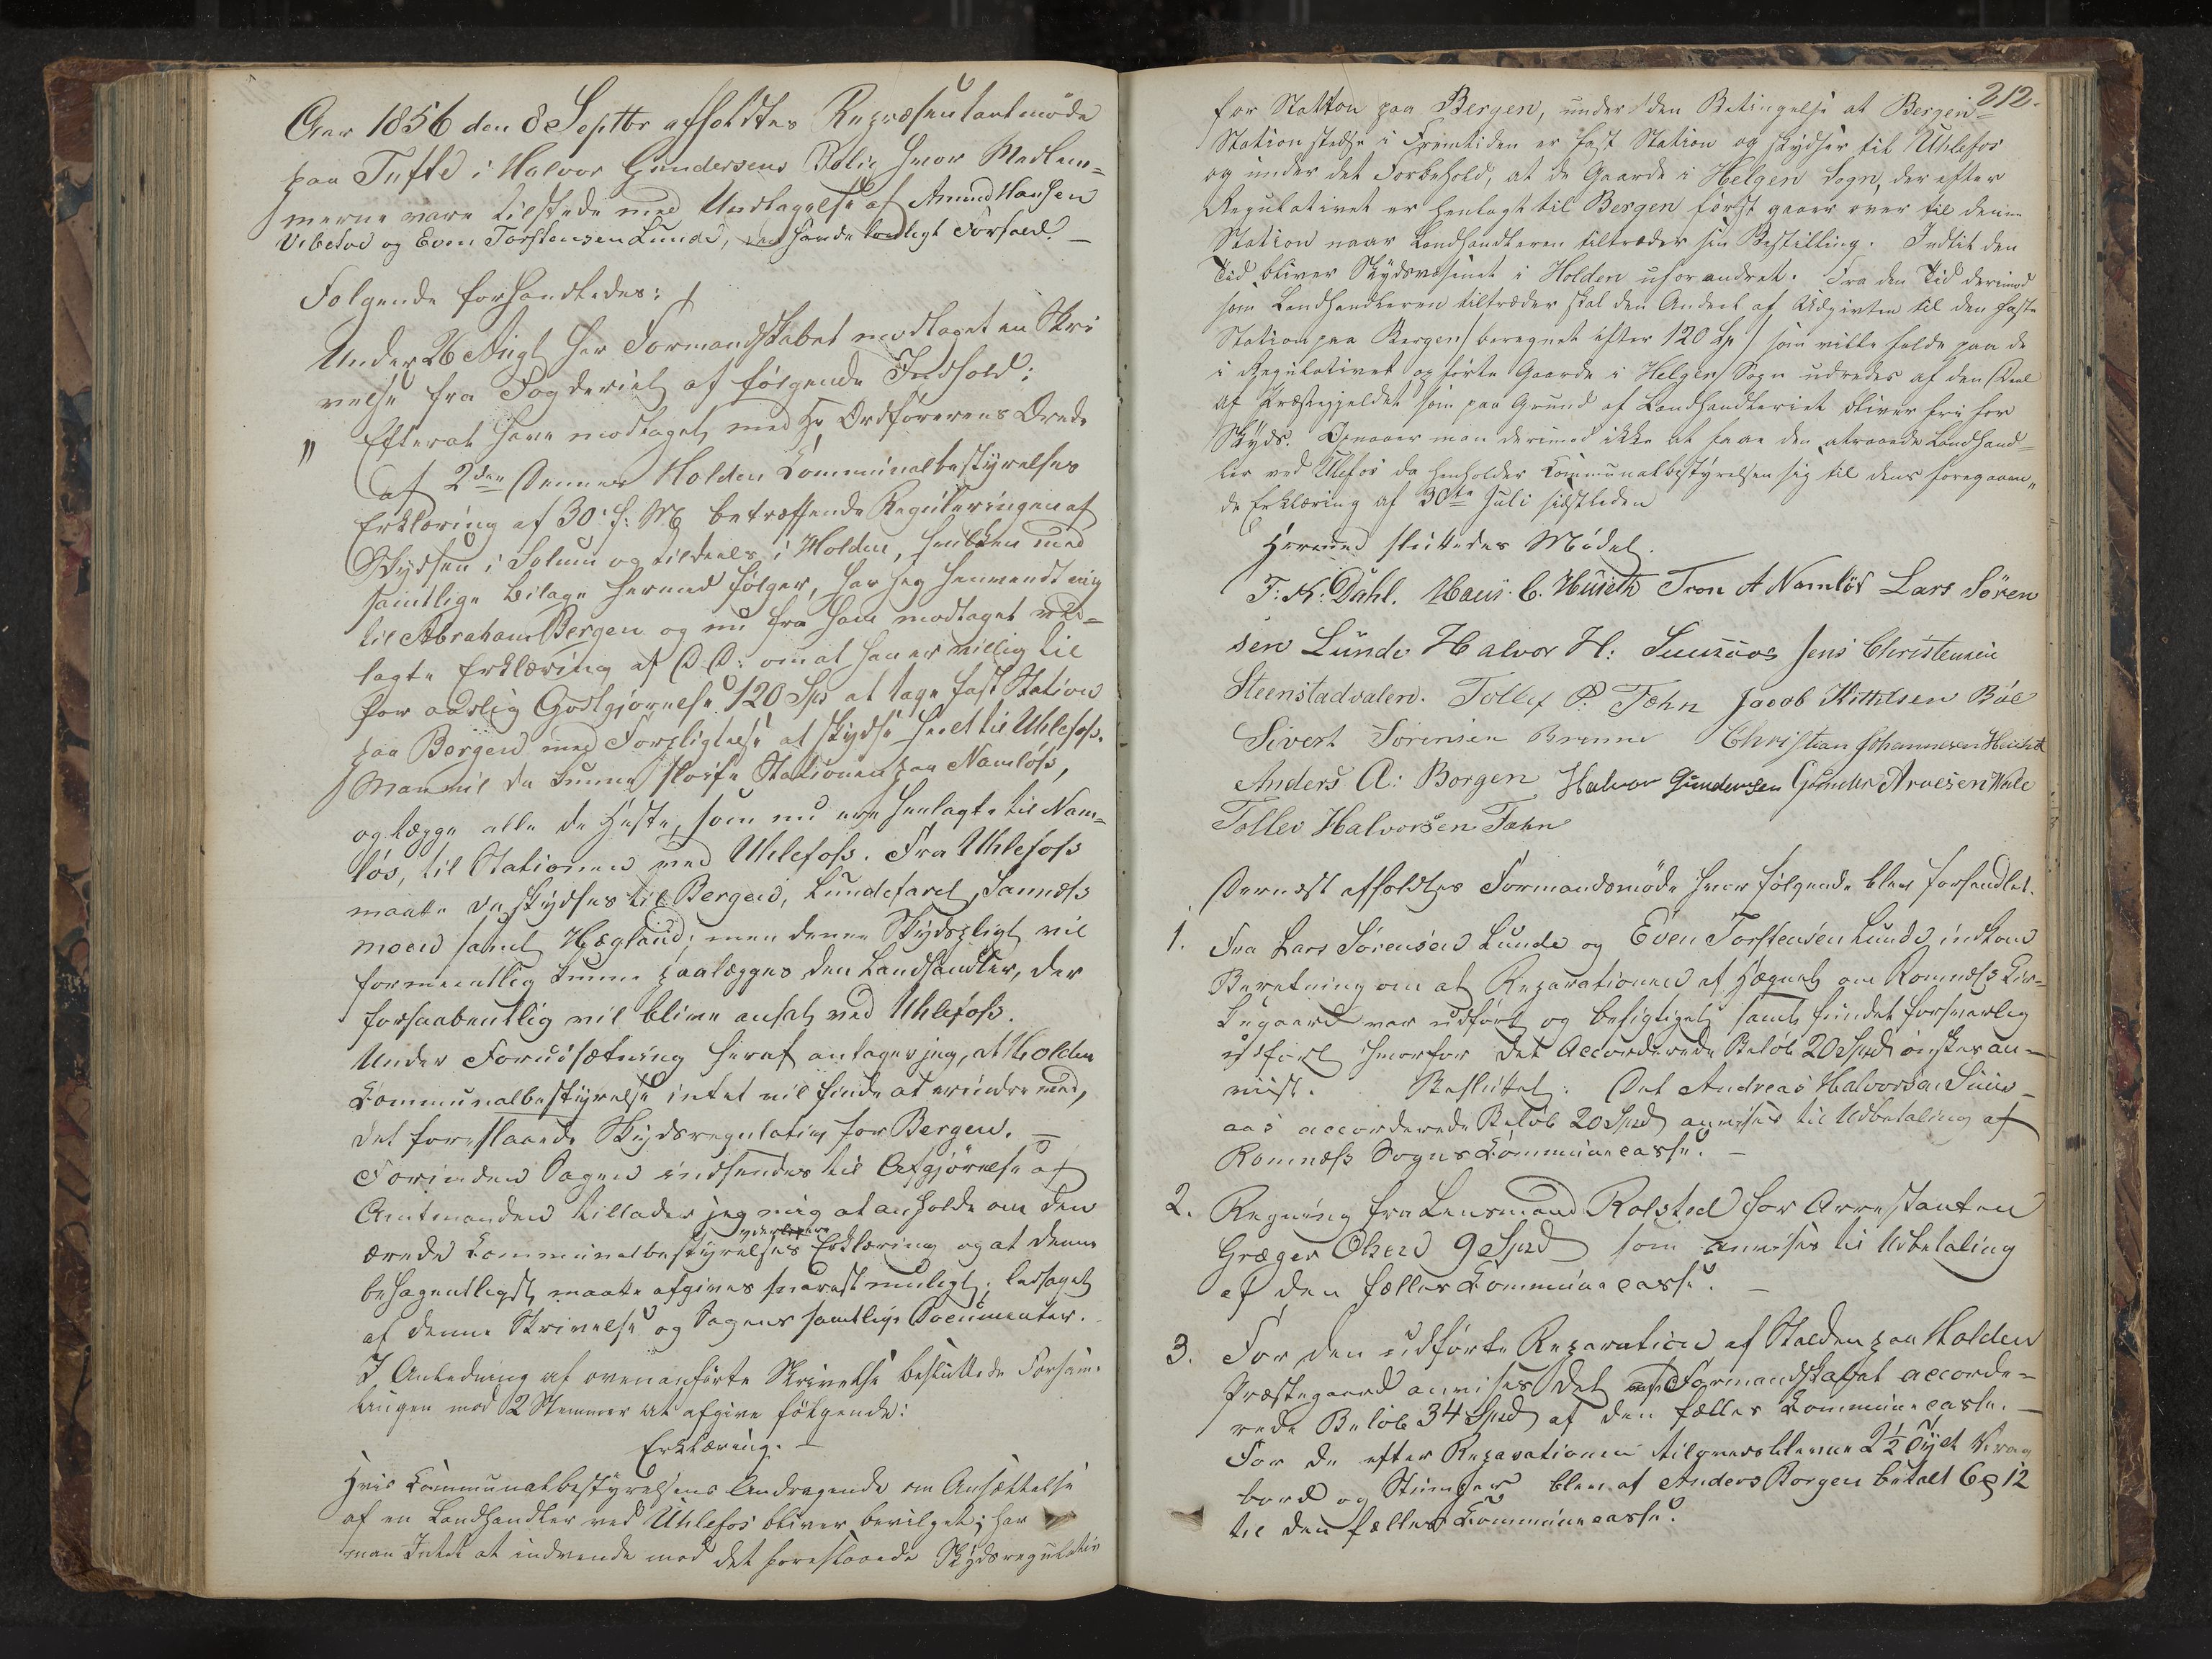 Aar 1856 den 8 Septbr afholdtes Repræsentantmöde
paa Tufte i Halvor Gundersens Bolig hvor Medlem-
merne vare tilstede med Undtagelse af Amund Hansen
Vibetoe og Even Torstensen Lunde, havde lovligt Forfald. —
Følgende forhandledes:
Under 26 Augt har Formandskabet modtaget en Skri
velse fra Fogderiet af følgende Indhold:
" Efterat have modtaget med Hr Ordførerens Brev
af 2den Dennes Holden Communalbestyrelses
Erklæring af 30' f: M betræffende Reguleringen af
Skydsen i Solum og tildeels i Holden, hvilken med
samtlige Bilage hermed følger, har jeg henvendt mig
til Abraham Bergen og nu fra ham modtaget ved-
lagte Erklæring af D. D: om at han er villig til
for aarlig Godtgjørelse 120 Spd at tage fast Station
paa Bergen med Forpligtelse at skydse til Uhlefoss.
Man vil da kunne sløife Stationen paa Namløs,
og lægge alle de Heste, som nu ere henlagte til Nam-
løs, til Stationen ved Uhlefoss. Fra Uhlefoss
maatte da skydses til Bergen, Lundefaret, Sannæss
moen samt Hægland; men denne Skydspligt vil
formeentlig kunne paalægges den Landhandler, der
forhaabentlig vil blive ansat ved Uhlefoss.
Under Forudsætning heraf antager jeg, at Holden
Communalbestyrelse intet vil finde at erindre med,
det foreslaaede Skydsregulativ for Bergen. —
Forinden Sagen indsendes til Afgjørelse af
Amtmanden tillader jeg mig at anholde om den
ærede Communalbestyrelses yderligere Erklæring og at denne
behagentligst maatte afgives snarest muligt, ledsaget
af denne Skrivelse og Sagens samtlige Documenter.
I Anledning af ovenanførte Skrivelse besluttede Forsam-
lingen mod 2 Stemmer at afgive følgende:
Erklæring. —
Hvis Communalbestyrelsens Andragende om Ansættelse
af en Landhandler ved Uhlefos bliver bevilget; har
man Intet at indvende mod det foreslaaede Skydsregulativ
212.
for Station paa Bergen, under den Betingelse at Bergen-
Station stedse i Fremtiden er fast Station og skydser til Uhlefos
og under det Forbehold, at de Gaarde i Helgen Sogn, der efter
Regulativet er henlagt til Bergen først gaaer over til denne
Station naar Landhandleren tiltræder sin Bestilling. Indtil den
Tid bliver Skydsvæsenet i Holden uforandret. Fra den Tid derimod
som Landhandleren tiltræder skal den Andeel af Udgivten til den faste
Station paa Bergen / beregnet efter 120 Sp / som vilde falde paa de
i Regulativet opførte Gaarde i Helgen Sogn udredes af den Deel
af Præstegjeldet som paa Grund af Landhandleriet bliver fri for
Skyds. Opnaaer man derimod ikke at faae den attraaede Landhand-
ler ved Ulefos da henholder Communalbestyrelsen sig til dens foregaaen-
de Erklæring af 30te Juli sidstleden
Hermed sluttedes Mödet.
F. K: Dahl. Hans C. Huseth Tron A Namlös Lars Sören
sen Lunde Halvor H: Sunsaas Jens Christensen
Steenstadvalen. Tollef P. Fæhn Jacob Kittilsen Bøe
Sivert Sörensen Brenne Christian Johannesen Heisholt
Anders A: Borgen Halvor Gundersen Gunder Arvesen Wale
Tollev Halvorsen Fæhn
Dernæst afholdtes Formandsmöde hvor følgende blev forhandlet.
1. Fra Lars Sörensen Lunde og Even Torstensen Lunde indkom
Beretning om at Reparationen af Hægnet om Romnæss Kir-
kegaard var udført og besigtiget samt fundet forsvarlig
udført hvorfor det Accorderede Beløb 20 Spd ønskes an-
viist. Besluttet: Det Andreas Halvorsen Suns-
aas accorderede Beløb 20 Spd anvises til Udbetaling af
Romnæss Sogns Communecasse. —
2. Regning fra Lensmand Rolsted for Arrestanten
Græger Oksen 9 Spd som anvises til Udbetaling
af den fælles Communecasse. —
3. For den udførte Reparation af Stalden paa Holden
Præstegaard anvises det af Formandskabet accorde-
rede Beløb 34 Spd af den fælles Communecasse. —
For de efter Reparationen tiloversblevne 2½ Tylt Vrag
bord og Stumper blev af Anders Borgen betalt 6 12
til den fælles Communecasse.